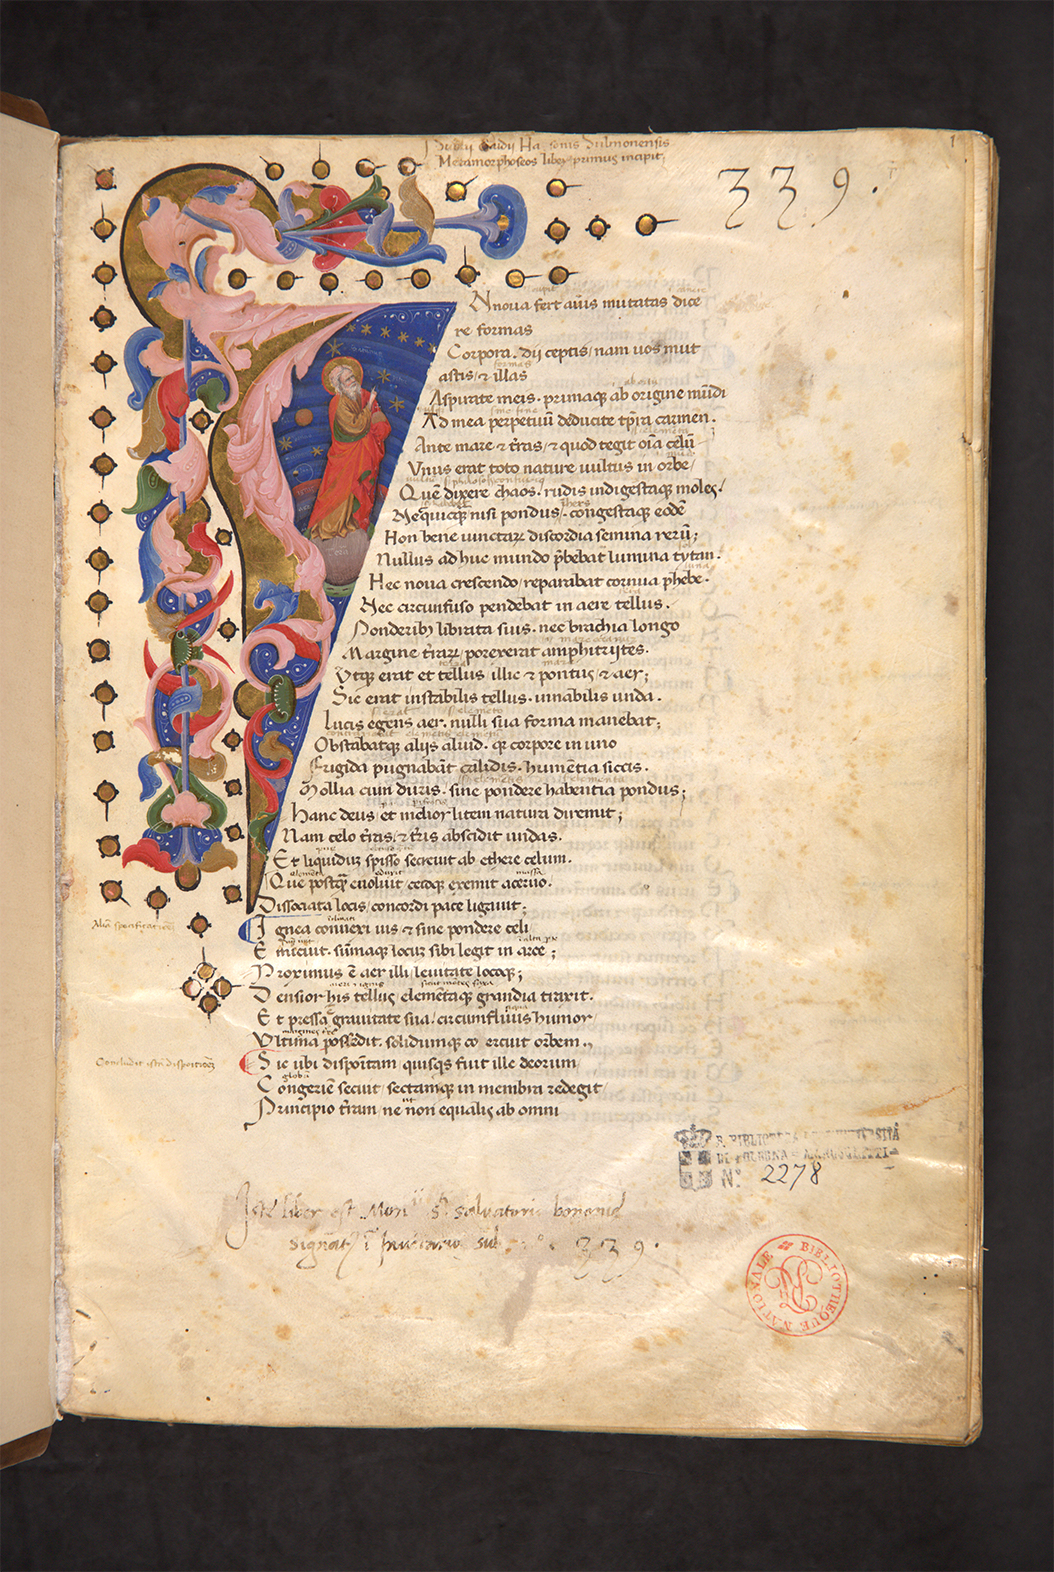 Metamorphoseos liber primus incipit
1
339.
N noua fert aĩus mutatas dice
re formas
Corpora. dij ceptis / nam uos mut
formas
astis / ⁊ illas
Aspirate meis. primaq; ab origine mũdi
Ad mea perpetuũ deducite tp̃ra carmen.
Ante mare ⁊ t̃ras / ⁊ quod tegit oĩa celũ
Vnus erat toto nature uultus in orbe /
Quẽ dixere chaos. rudis indigestaq; moles.
Nec quicq; nisi pondus / congestaq; eodẽ
Non bene iunctarũ discordia semina rerũ;
Nullus adhuc mundo p̃bebat lumina tytan.
Hec noua crescendo / reparabat cornua phebe.
Nec circunfuso pendebat in aere tellus.
Ponderib; librata suis. nec brachia longo
Margine t̃rarũ porrexerat amphitrites.
Vtq; erat et tellus illic ⁊ pontus / ⁊ aer;
Sic erat instabilis tellus. innabilis unda.
Lucis egens aer. nulli sua forma manebat;
Obstabatq; alijs aliud. q; corpore in uno
Frigida pugnabãt calidis. humẽtia siccis.
Mollia cum duris. sine pondere habentia pondus;
Hanc deus / et melior litem natura diremit;
Nam celo t̃ras / ⁊ t̃ris abscidit undas.
Et liquidum spisso secreuit ab ethere celum.
Que postq̃ euoluit cecoq; exemit aceruo.
Dissociata locis / concordi pace ligauit;
Ignea conuexi uis ⁊ sine pondere celi
Emicuit. sũmaq; locum sibi legit in arce;
Proximus ẽ aer illi / leuitate locoq;
Densior his tellus / elemẽtaq; grandia traxit.
Et pressa ẽ grauitate sua / circumfluus humor
Vltima possedit. solidumq; coercuit orbem.
Sic ubi dispositam quisq̃s fuit ille deorum
Congeriẽ secuit / sectamq; in membra redegit /
Principio t̃ram / ne nõn equalis ab omni
R. BIBLIOTECA UNIVERSITÀ
DI BOLOGNA
N.° 2278
Iste liber est Mon.ii S. saluatoris bononie
signat. ĩ Inuentario sub n.° 339.
BIBLIOTHÈQUE NATIONALE